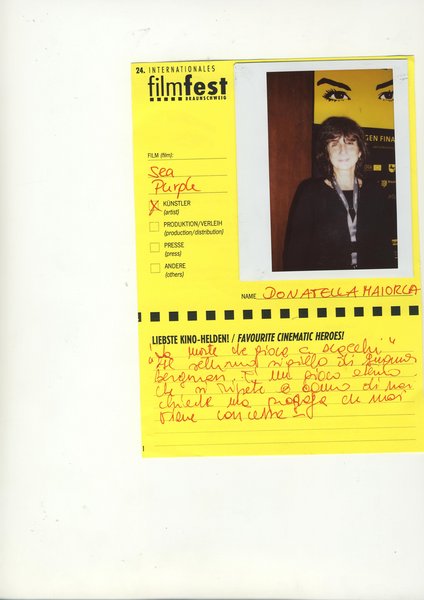 24. INTERNATIONALES
filmfest
BRAUNSCHWEIG
GEN FINA
FILM (film):
Sea
Purple
X KÜNSTLER
(artist)
PRODUKTION/VERLEIH
(production/distribution)
PRESSE
(press)
ANDERE
(others)
NAME DONATELLA MAIORCA
LIEBSTE KINO-HELDEN! / FAVOURITE CINEMATIC HEROES!
"La morte che gioca a scacchi"
Al settimo sigillo di Ingmar
Bergman. E' un gioco eterno
che si ripete e ognuno di noi
chiede una proroga che mai
viene concessa